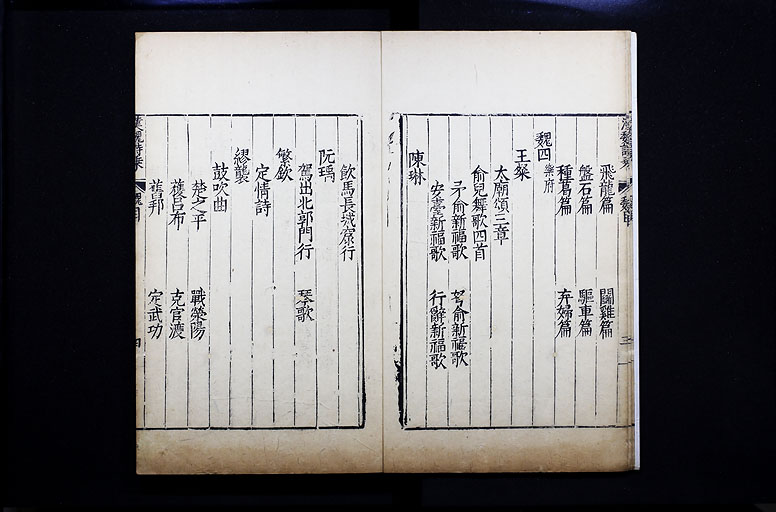 飛龍篇 鬬雞篇
盤石篇 驅車篇
種葛篇 弃婦篇
魏四 樂府
王粲
太廟頌三章
俞兒舞歌四首
矛俞新福歌 弩俞新福歌
安臺新福歌 行辭新福歌
陳琳
飲馬長城窟行
阮瑀
駕出北郭門行 琴歌
繁欽
定情詩
繆襲
鼓吹曲
楚之平 戰滎陽
獲呂布 克官渡
舊邦 定武功